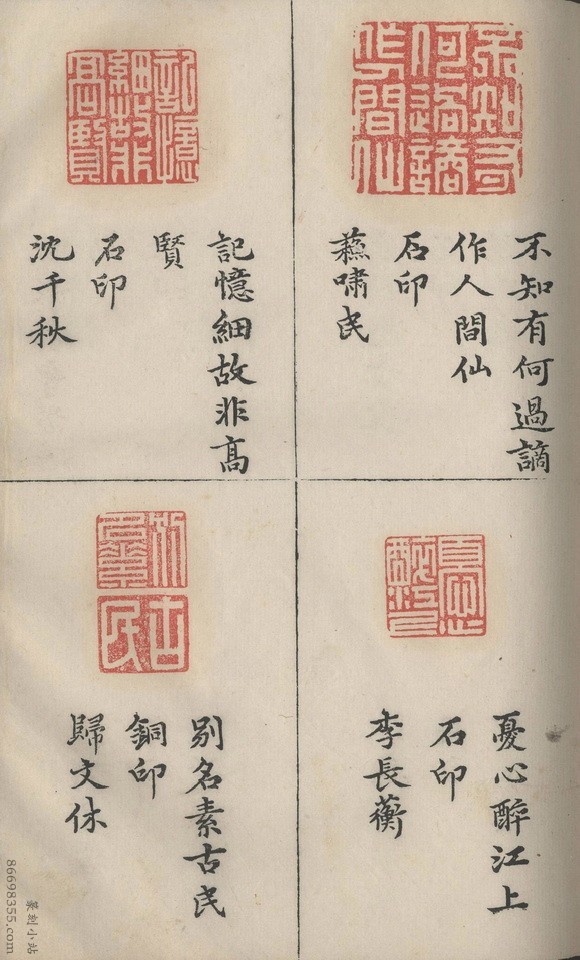 不知有何過謫
作人間仙
石印
蘓嘯民
記憶細故非高
賢
石印
沈千秋
憂心醉江上
石印
李長蘅
別名素古民
銅印
歸文休
篆刻小站
86698355.com